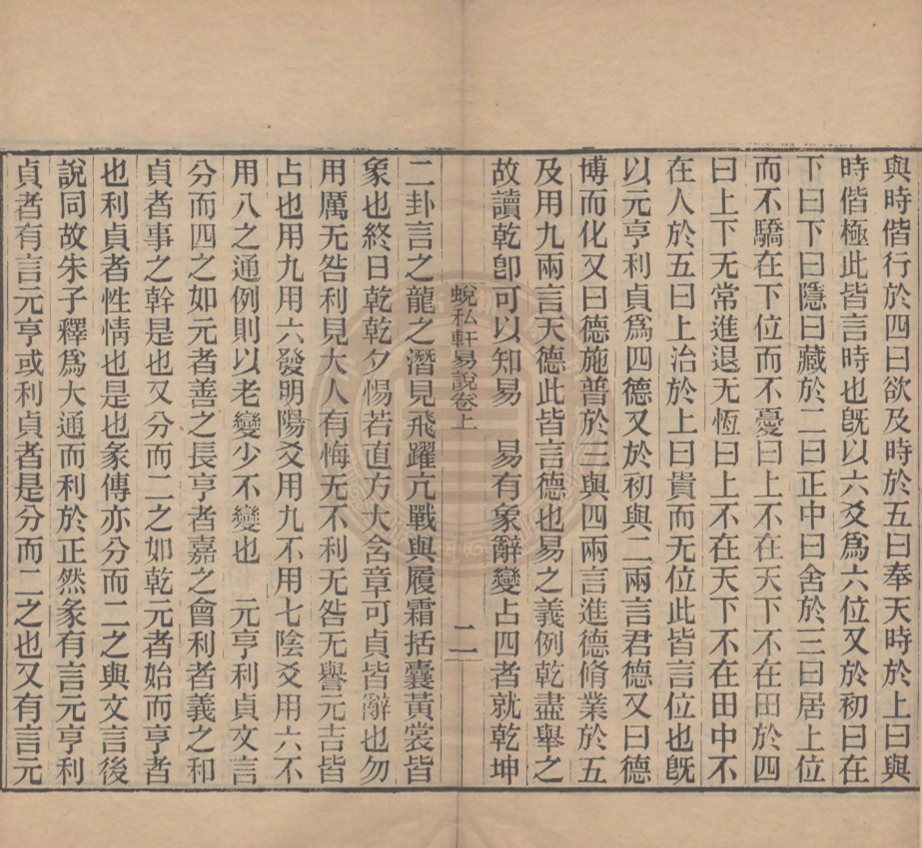 與時偕行於四曰欲及時於五曰奉天時於上曰與
時偕極此皆言時也旣以六爻爲六位又於初曰在
下曰下曰隱曰藏於二曰正中曰舍於三曰居上位
而不驕在下位而不憂曰上不在天下不在田於四
曰上下无常進退无恆曰上不在天下不在田中不
在人於五曰上治於上曰貴而无位此皆言位也旣
以元亨利貞爲四德又於初與二兩言君德又曰德
博而化又曰德施普於三與四兩言進德脩業於五
及用九兩言天德此皆言德也易之義例乾盡舉之
故讀乾卽可以知易　易有象辭變占四者就乾坤
蛻私軒易說卷上　二
二卦言之龍之潛見飛躍亢戰與履霜括囊黃裳皆
象也終日乾乾夕惕若直方大含章可貞皆辭也勿
用厲无咎利見大人有悔无不利无咎无譽元吉皆
占也用九用六發明陽爻用九不用七陰爻用六不
用八之通例則以老變少不變也　元亨利貞文言
分而四之如元者善之長亨者嘉之會利者義之和
貞者事之幹是也又分而二之如乾元者始而亨者
也利貞者性情也是也彖傳亦分而二之與文言後
說同故朱子釋爲大通而利於正然彖有言元亨利
貞者有言元亨或利貞者是分而二之也又有言元